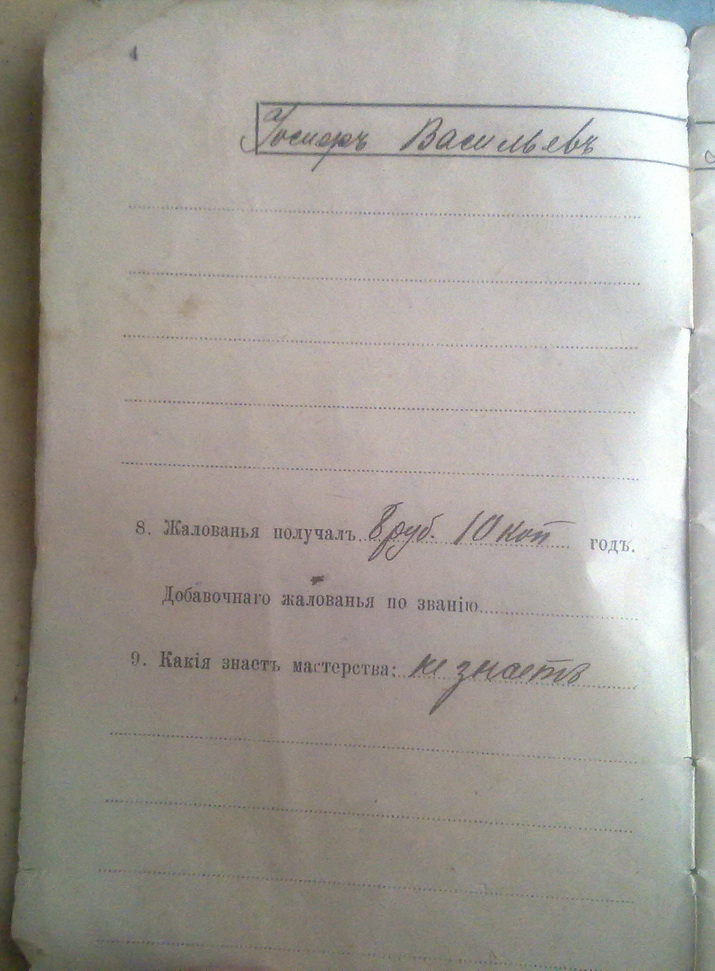 4
Васильевъ
8. Жалованья получалъ 8 руб. 10 коп годъ.
Добавочнаго жалованья по званію
9. Какія знаетъ мастерства: не знаетъ